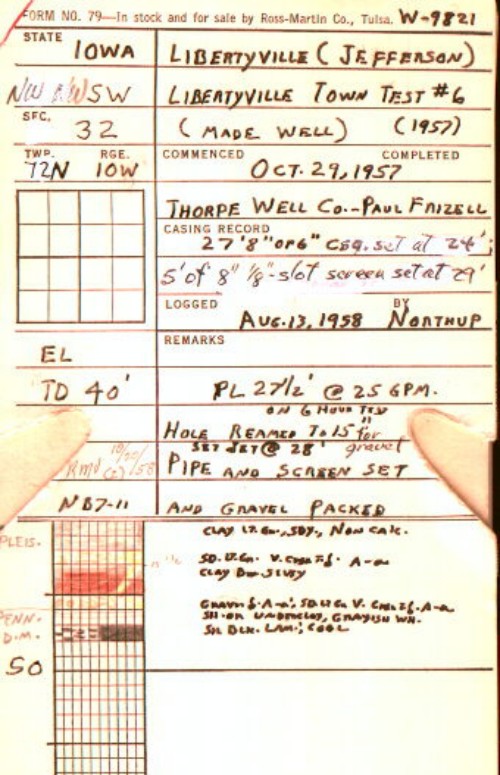 FORM NO. 79—In stock and for sale by Ross-Martin Co., Tulsa. W-9821
STATE
IOWA
LIBERTYVILLE (JEFFERSON)
NW NWSW
LIBERTYVILLE TOWN TEST #6
SEC.
32
(MADE WELL) (1957)
TWP. RGE.
72N 10W
COMMENCED COMPLETED
OCT. 29, 1957
THORPE WELL CO.--PAUL FRIZELL
CASING RECORD
27'8" OF 6" CSG. set at 24';
5' of 8" 1/8"-slot screen set at 29'
LOGGED BY
AUG. 13, 1958 NORTHUP
EL
REMARKS
TD 40'
PL 27 1/2' @ 25 GPM.
ON 6 HOUR TEST
HOLE REAMED TO 15" for gravel
SET JET @ 28'
Rmd (2) 10/20/58
PIPE AND SCREEN SET
NB7-11
AND GRAVEL PACKED
PLEIS.
CLAY LT. GN., SDY., NON CALC.
SD. LT. GN. V. CRS. TO f. A-a
CLAY BN. SILTY
PENN.
D.M.
GRAVEL f. A-a; SD. LT. GN V. CRS. TO f. A-a
SH. OR UNDERCLAY, GRAYISH WH.
SH. BLK. LAM.; COAL
50